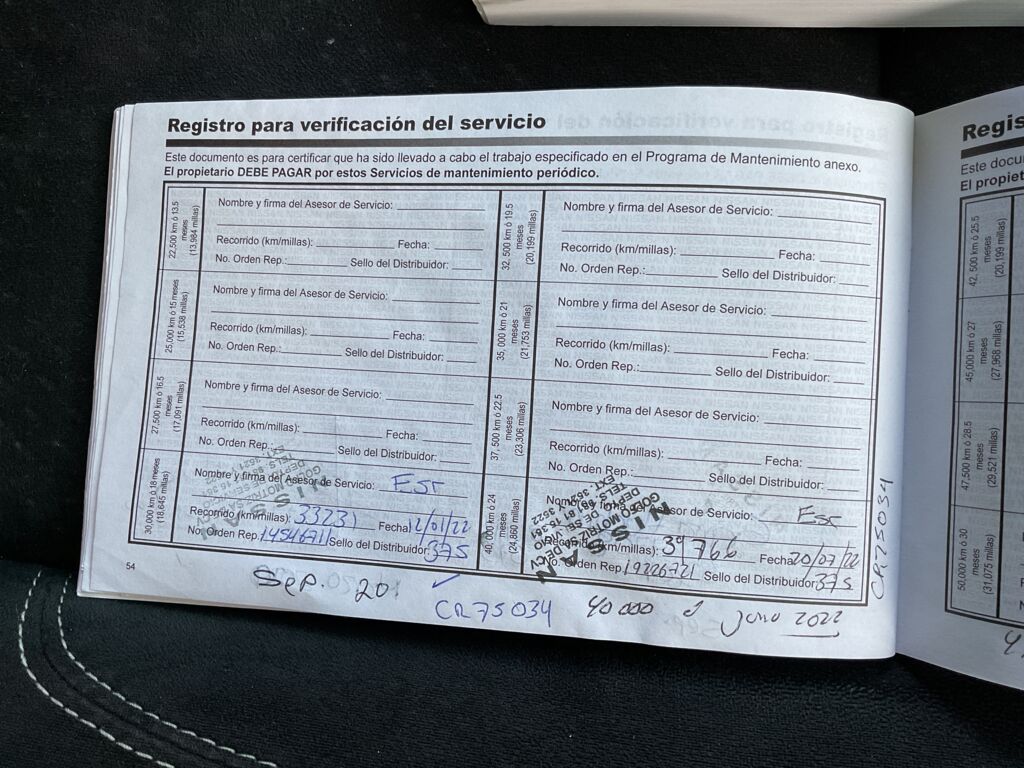 Registro para verificación del servicio
Este documento es para certificar que ha sido llevado a cabo el trabajo especificado en el Programa de Mantenimiento anexo.
El propietario DEBE PAGAR por estos Servicios de mantenimiento periódico.
22,500 km ó 13.5
meses
(13,984 millas)
Nombre y firma del Asesor de Servicio:
Recorrido (km/millas): Fecha:
No. Orden Rep.: Sello del Distribuidor:
25,000 km ó 15 meses
(15,538 millas)
Nombre y firma del Asesor de Servicio:
Recorrido (km/millas): Fecha:
No. Orden Rep.: Sello del Distribuidor:
27,500 km ó 16.5
meses
(17,091 millas)
Nombre y firma del Asesor de Servicio:
Recorrido (km/millas): Fecha:
No. Orden Rep.: Sello del Distribuidor:
30,000 km ó 18 meses
(18,645 millas)
Nombre y firma del Asesor de Servicio:
Recorrido (km/millas): 33231 Fecha: 12/01/22
No. Orden Rep. Sello del Distribuidor: 375
32, 500 km ó 19.5
meses
(20,199 millas)
Nombre y firma del Asesor de Servicio:
Recorrido (km/millas): Fecha:
No. Orden Rep.: Sello del Distribuidor:
35, 000 km ó 21
meses
(21,753 millas)
Nombre y firma del Asesor de Servicio:
Recorrido (km/millas): Fecha:
No. Orden Rep.: Sello del Distribuidor:
37, 500 km ó 22.5
meses
(23,306 millas)
Nombre y firma del Asesor de Servicio:
Recorrido (km/millas): Fecha:
No. Orden Rep.: Sello del Distribuidor:
40, 000 km ó 24
(24,860 millas)
Servicio:
(km/millas): 39766 Fecha: 20/07/22
Orden Rep. 19226721 Sello del Distribuidor: 375
NISSAN
CR75034
54
Sep. 20
CR75034
40 000
2022
Regis
Este docu
El propiet
42, 500 km ó 25.5
meses
(20,199 millas)
45,000 km ó 27
meses
(27,968 millas)
47,500 km ó 28.5
meses
(29,521 millas)
50,000 km ó 30
meses
(31,075 millas)